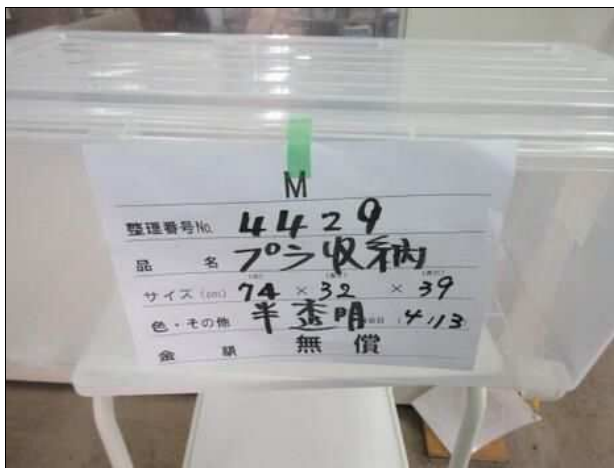 M
整理番号No. 4429
品 名 プラ収納
サイズ(cm) 74 × 32 × 39
色・その他 半透明 (4/13)
金 額 無 償